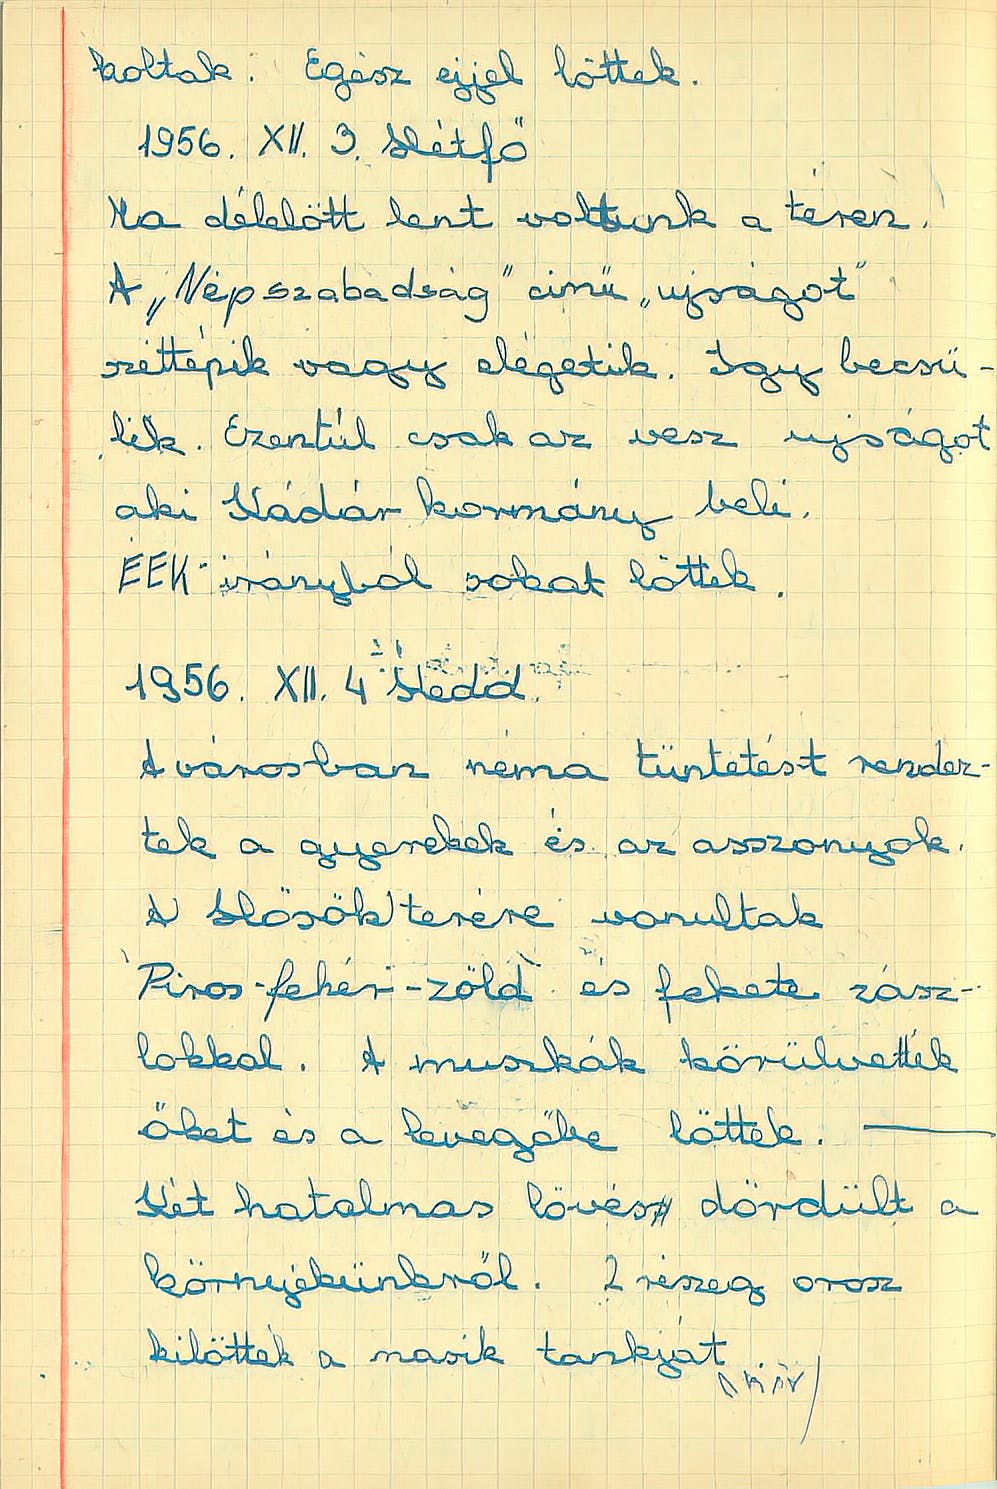 koltak. Egész ejjel lőttek.
1956. XII. 3. Hétfő
Ma délelőtt lent voltunk a téren.
A „Népszabadság" cimű „ujságot"
széttépik vagy elégetik. Igy becsü-
lik. Ezentúl csak az vesz ujságot
aki Kádár kormány beli.
ÉÉK irányból sokat lőttek.
1956. XII. 4 Kedd.
A városban néma tüntetést rendez-
tek a gyerekek és az asszonyok.
A Hősök terére vonultak
Piros-fehér-zöld és fekete zász-
lokkal. A muszkák körülvették
őket és a levegőbe lőttek.
Két hatalmas lövés dördült a
környékünkről. 2 részeg orosz
kilőtték a masik tankját